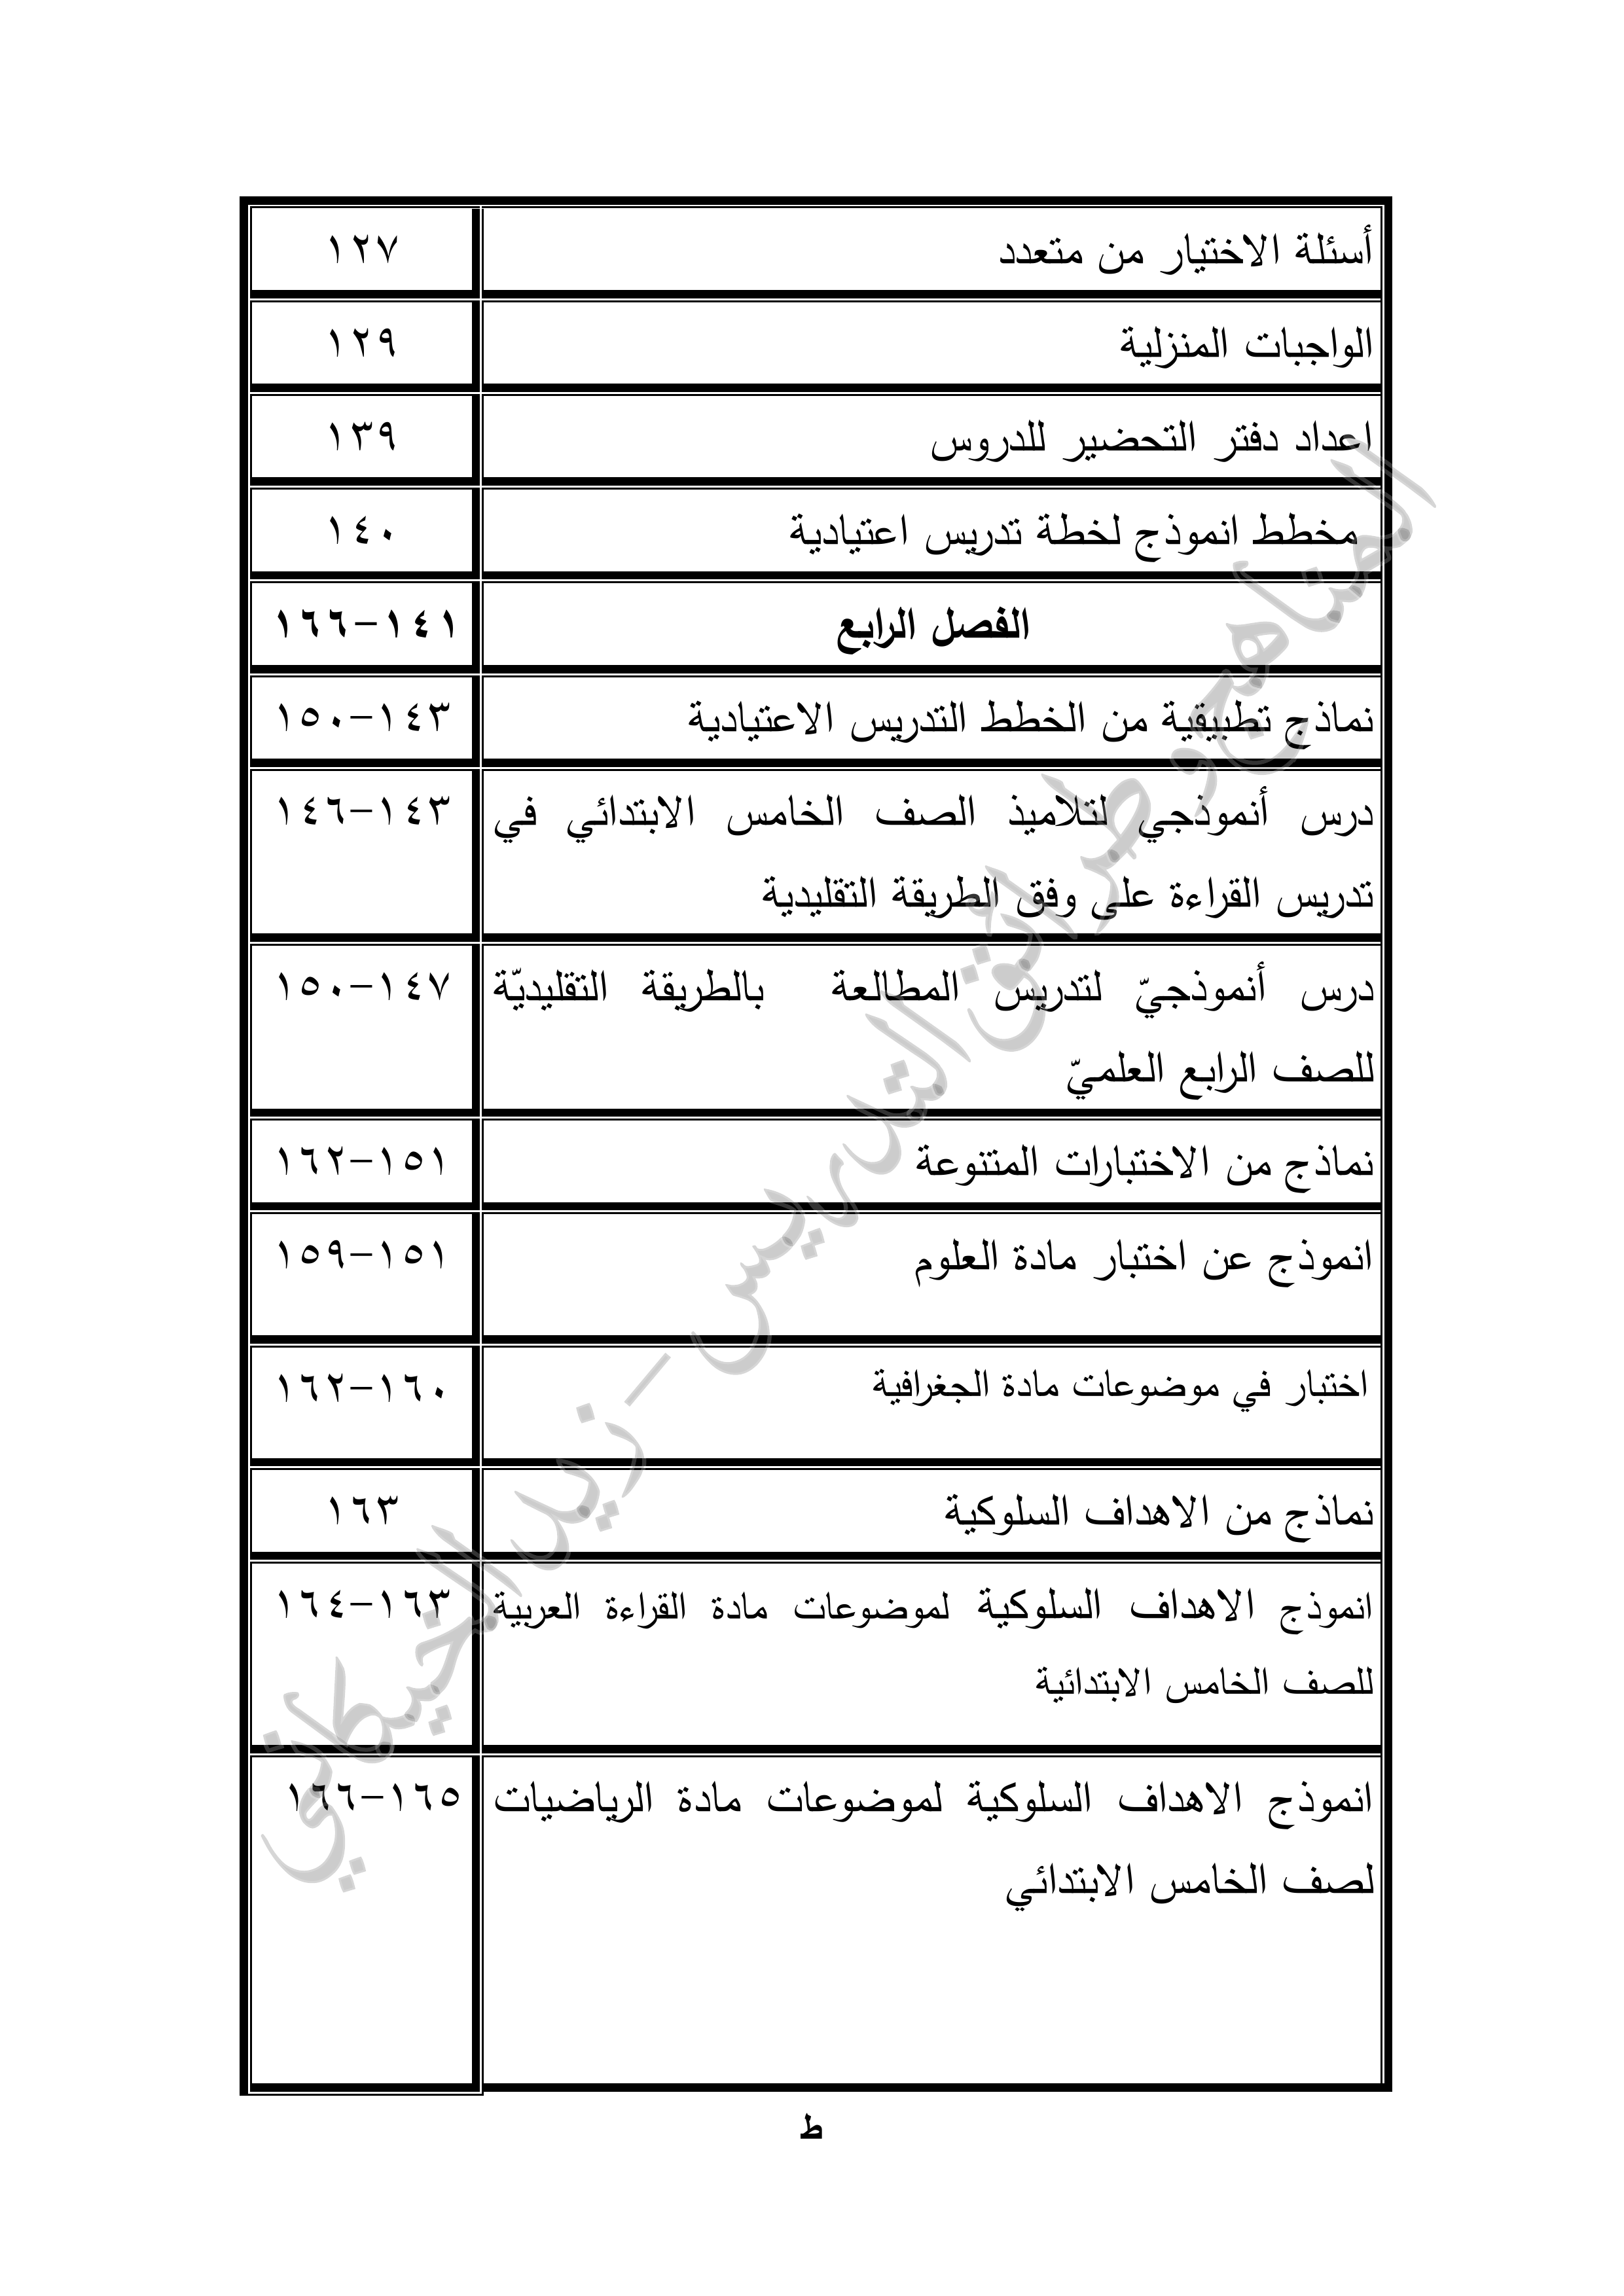 أسئلة الاختيار من متعدد ١٢٧
الواجبات المنزلية ١٢٩
اعداد دفتر التحضير للدروس ١٣٩
مخطط انموذج لخطة تدريس اعتيادية ١٤٠
الفصل الرابع ١٤١-١٦٦
نماذج تطبيقية من الخطط التدريس الاعتيادية ١٤٣-١٥٠
درس أنموذجي لتلاميذ الصف الخامس الابتدائي في ١٤٣-١٤٦
تدريس القراءة على وفق الطريقة التقليدية
درس أنموذجيّ لتدريس المطالعة بالطريقة التقليديّة ١٤٧-١٥٠
للصف الرابع العلميّ
نماذج من الاختبارات المتنوعة ١٥١-١٦٢
انموذج عن اختبار مادة العلوم ١٥١-١٥٩
اختبار في موضوعات مادة الجغرافية ١٦٠-١٦٢
نماذج من الاهداف السلوكية ١٦٣
انموذج الاهداف السلوكية لموضوعات مادة القراءة العربية ١٦٣-١٦٤
للصف الخامس الابتدائية
انموذج الاهداف السلوكية لموضوعات مادة الرياضيات ١٦٥-١٦٦
لصف الخامس الابتدائي
ط
المناهج وطرائق التدريس - زيد الخيكاني